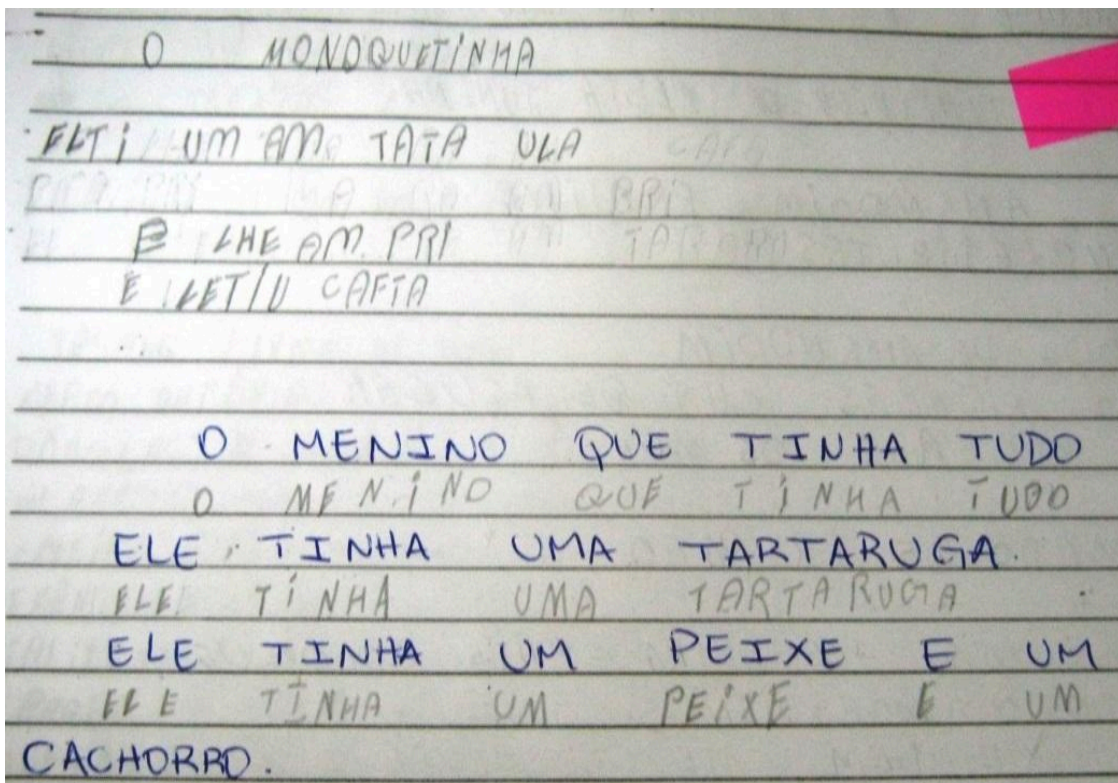 O MONOQUETINHA
ELTI UM AM TATA ULA
E LHE AM PRI
E LETIU CAFTA
O MENINO QUE TINHA TUDO
O MENINO QUE TINHA TUDO
ELE TINHA UMA TARTARUGA.
ELE TINHA UMA TARTARUGA
ELE TINHA UM PEIXE E UM
ELE TINHA UM PEIXE E UM
CACHORRO.